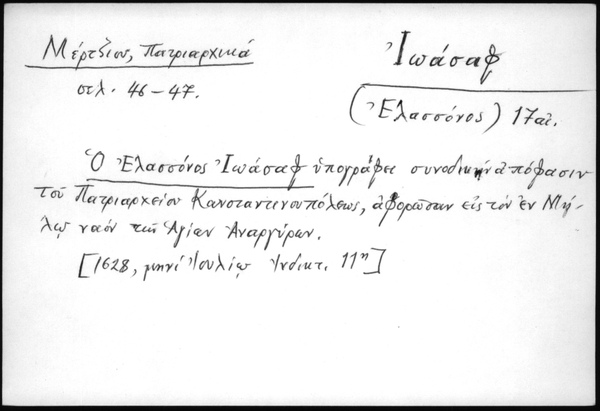 Μέρτζιου, Πατριαρχικά
σελ. 46-47.
Ἰωάσαφ
(Ἐλασσόνος) 17 αἰ.
Ὁ Ἐλασσόνος Ἰωάσαφ ὑπογράφει συνοδικήν ἀπόφασιν
τοῦ Πατριαρχείου Κωνσταντινουπόλεως, ἀφορῶσαν εἰς τόν ἐν Μή-
λῳ ναόν τῶν Ἁγίων Ἀναργύρων.
[1628, μηνί Ἰουλίῳ Ἰνδικτ. 11η]